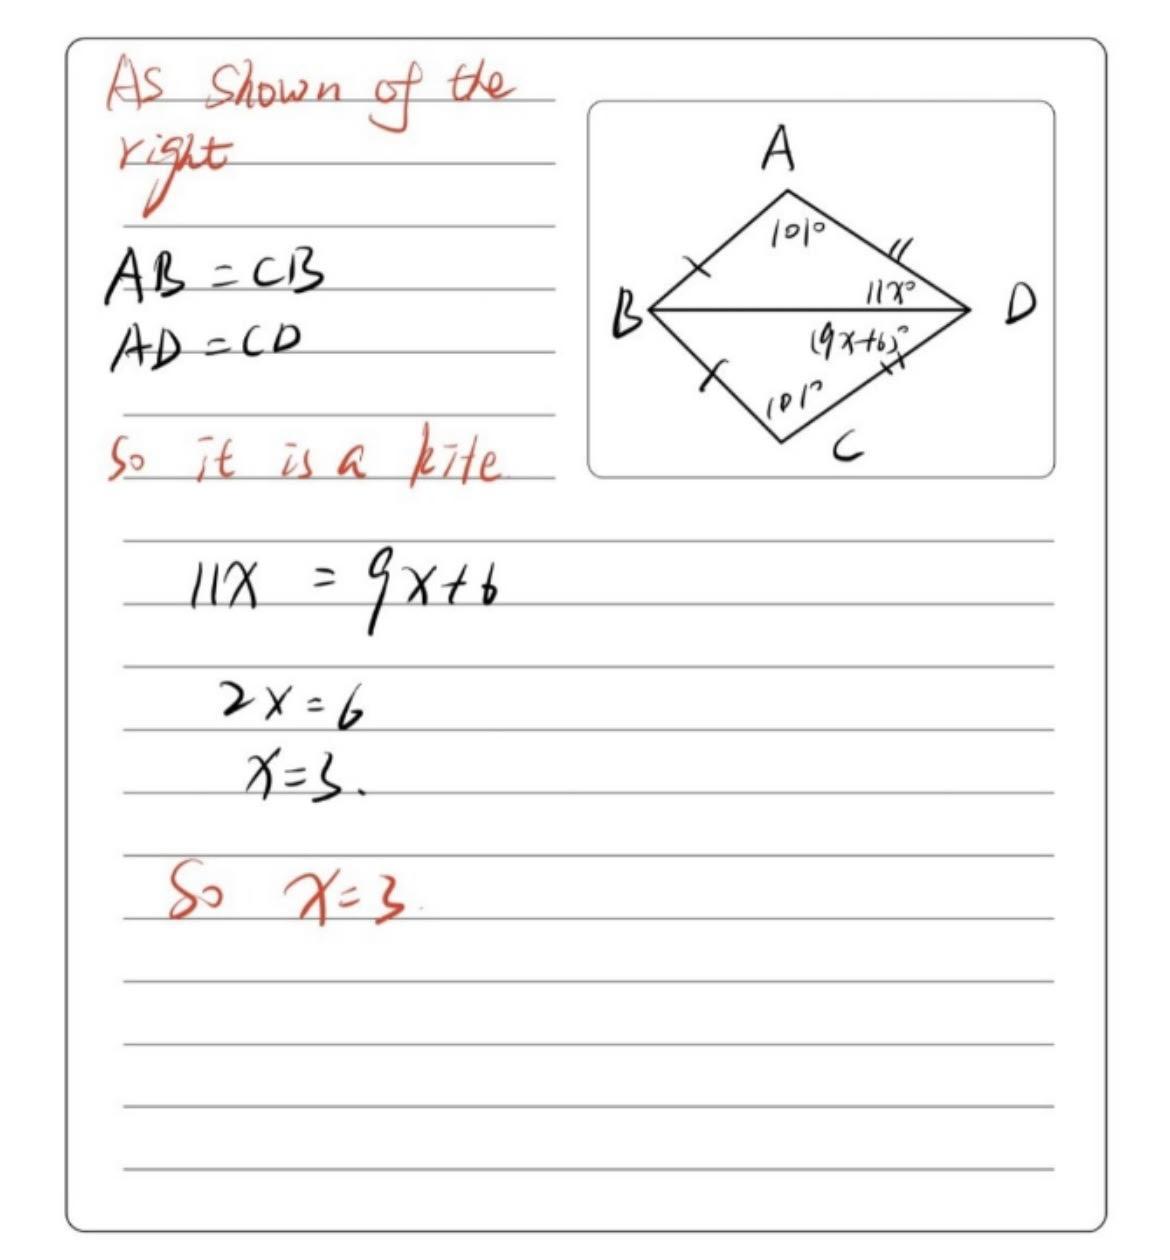 As shown of the
right
AB = CB
AD = CD
So it is a kite.
A
101°
11x°
B
D
(9x+6)°
101°
C
11x = 9x+6
2x = 6
x=3.
So x=3.